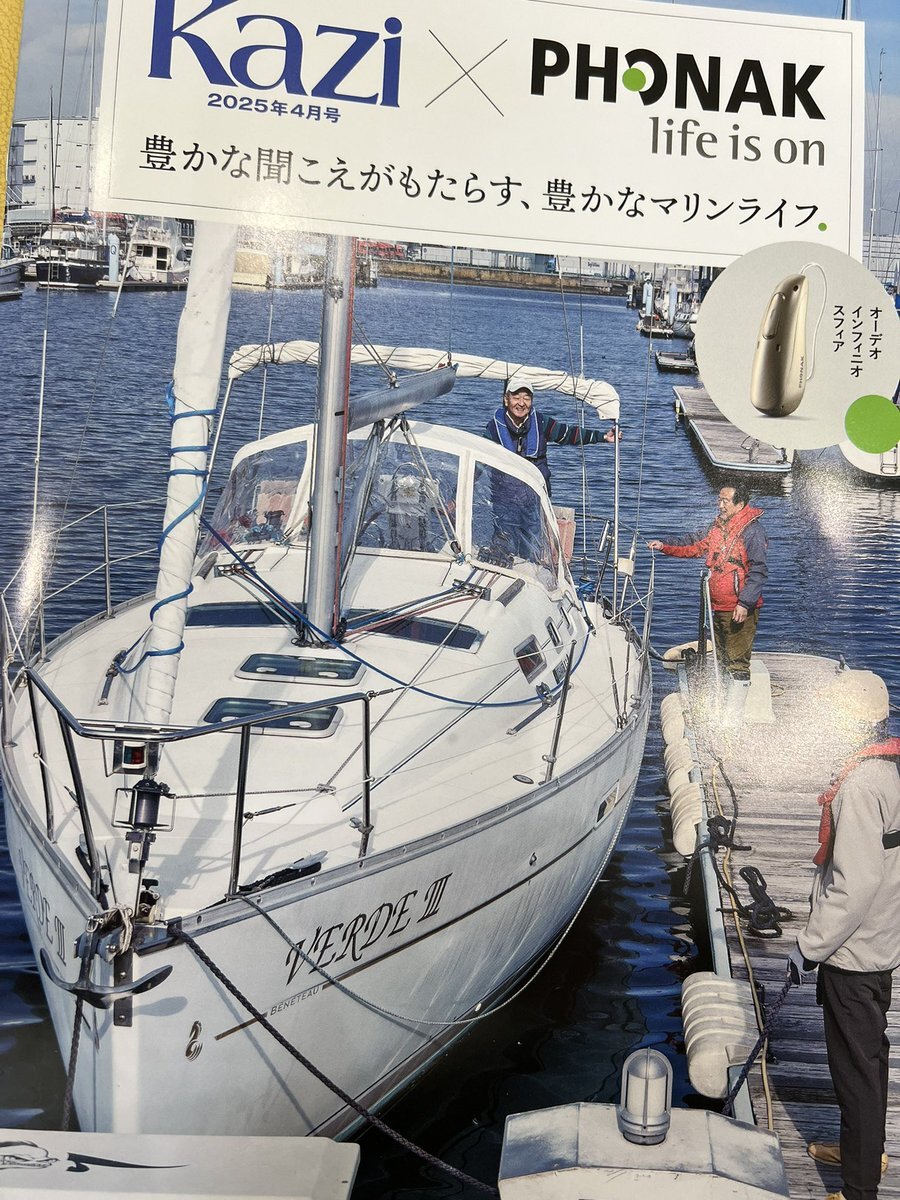 Kazi
2025年4月号
PHONAK
life is on
豊かな聞こえがもたらす、豊かなマリンライフ.
オーデオ
インフィニオ
スフィア
PHONAK
VERDE III
BENETEAU
ERDE III